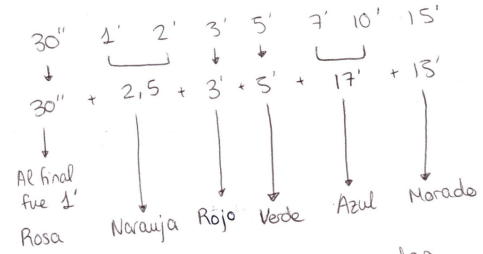 30" 1' 2' 3' 5' 7' 10' 15'
30" + 2,5 + 3' + 5' + 17' + 15'
Al final
fue 1'
Rosa Naranja Rojo Verde Azul Morado